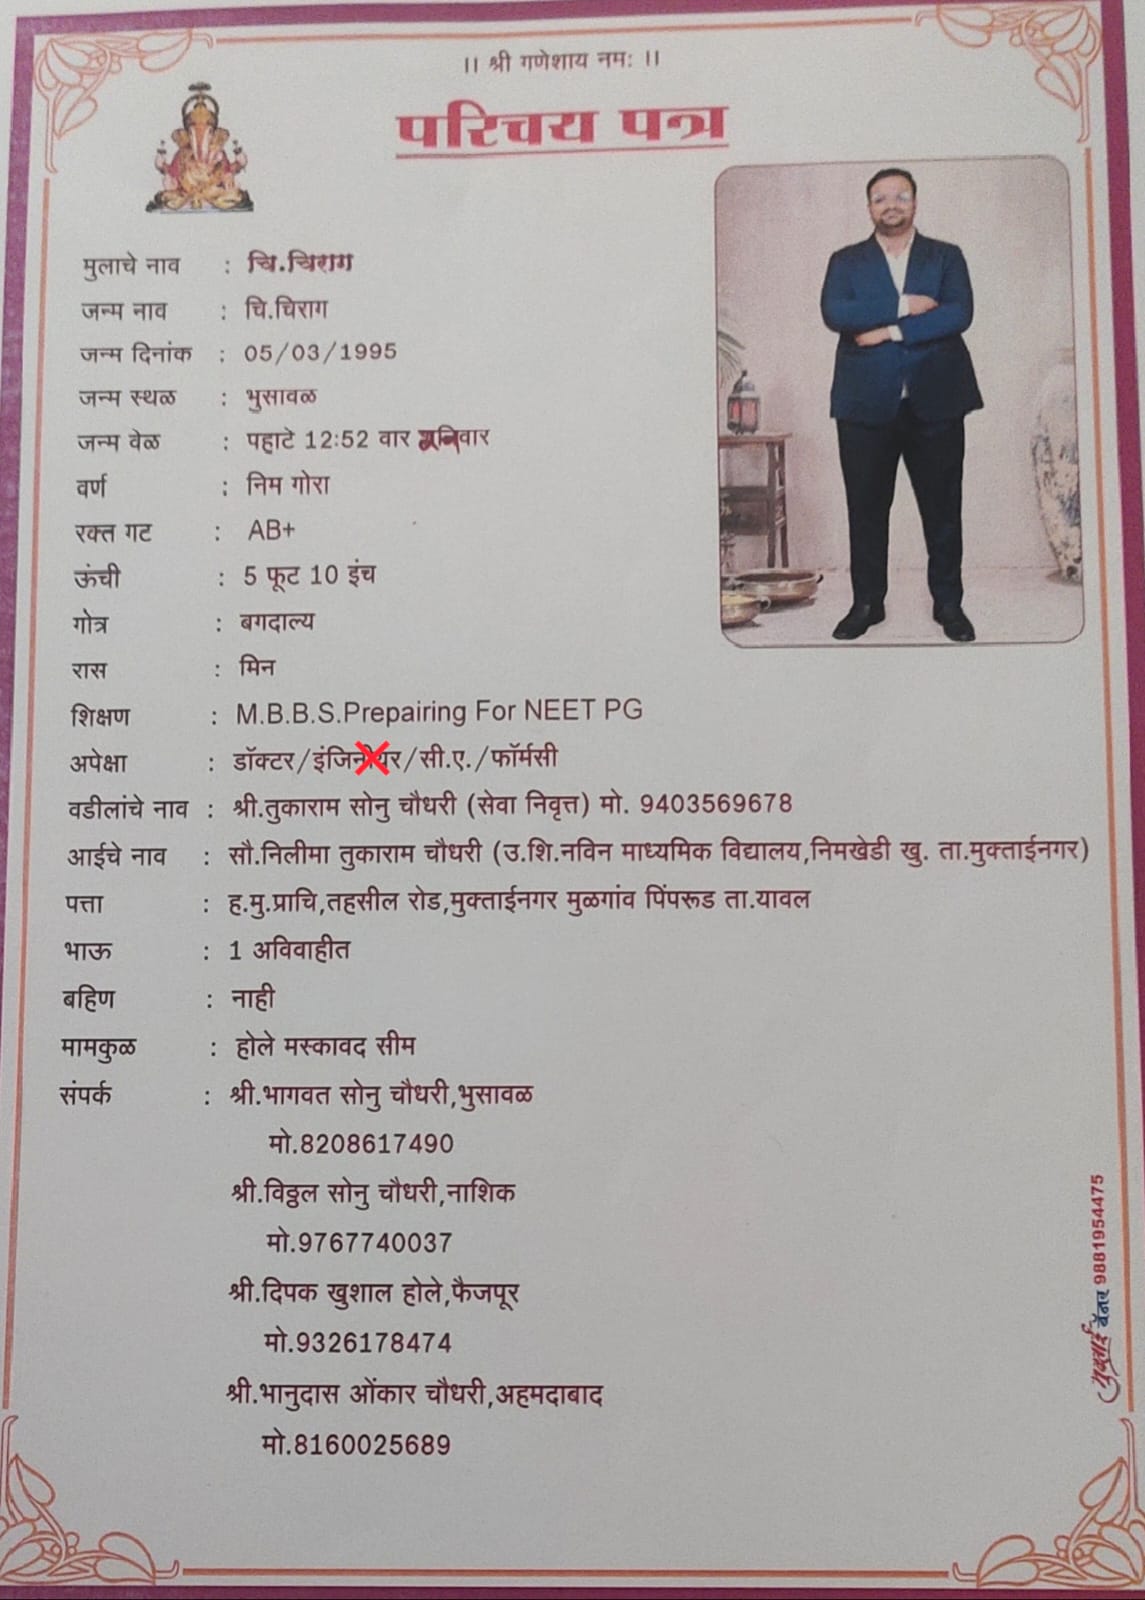 ।। श्री गणेशाय नमः ।।
परिचय पत्र
मुलाचे नाव : चि.चिराग
जन्म नाव : चि.चिराग
जन्म दिनांक : 05/03/1995
जन्म स्थळ : भुसावळ
जन्म वेळ : पहाटे 12:52 वार शनिवार
वर्ण : निम गोरा
रक्त गट : AB+
ऊंची : 5 फूट 10 इंच
गोत्र : बगदाल्य
रास : मिन
शिक्षण : M.B.B.S.Prepairing For NEET PG
अपेक्षा : डॉक्टर/इंजिनीयर/सी.ए./फॉर्मसी
वडीलांचे नाव : श्री.तुकाराम सोनु चौधरी (सेवा निवृत्त) मो. 9403569678
आईचे नाव : सौ.निलीमा तुकाराम चौधरी (उ.शि.नविन माध्यमिक विद्यालय,निमखेडी खु. ता.मुक्ताईनगर)
पत्ता : ह.मु.प्राचि,तहसील रोड,मुक्ताईनगर मुळगांव पिंपरूड ता.यावल
भाऊ : 1 अविवाहीत
बहिण : नाही
मामकुळ : होले मस्कावद सीम
संपर्क : श्री.भागवत सोनु चौधरी,भुसावळ
मो.8208617490
श्री.विठ्ठल सोनु चौधरी,नाशिक
मो.9767740037
श्री.दिपक खुशाल होले,फैजपूर
मो.9326178474
श्री.भानुदास ओंकार चौधरी,अहमदाबाद
मो.8160025689
मुक्ताई बॅनर 9881954475